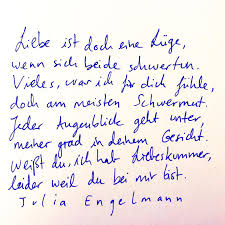 Liebe ist doch eine Lüge,
wenn sich beide schwerfun.
Vieles, war ich für dich fühle,
doch am meisten Schwermut.
Jeder Augenblick geht unter,
meiner grad in deinem Gesicht.
weißt du, ich hab Liebeskummer,
leider weil du bei mir bist.
Julia Engelmann